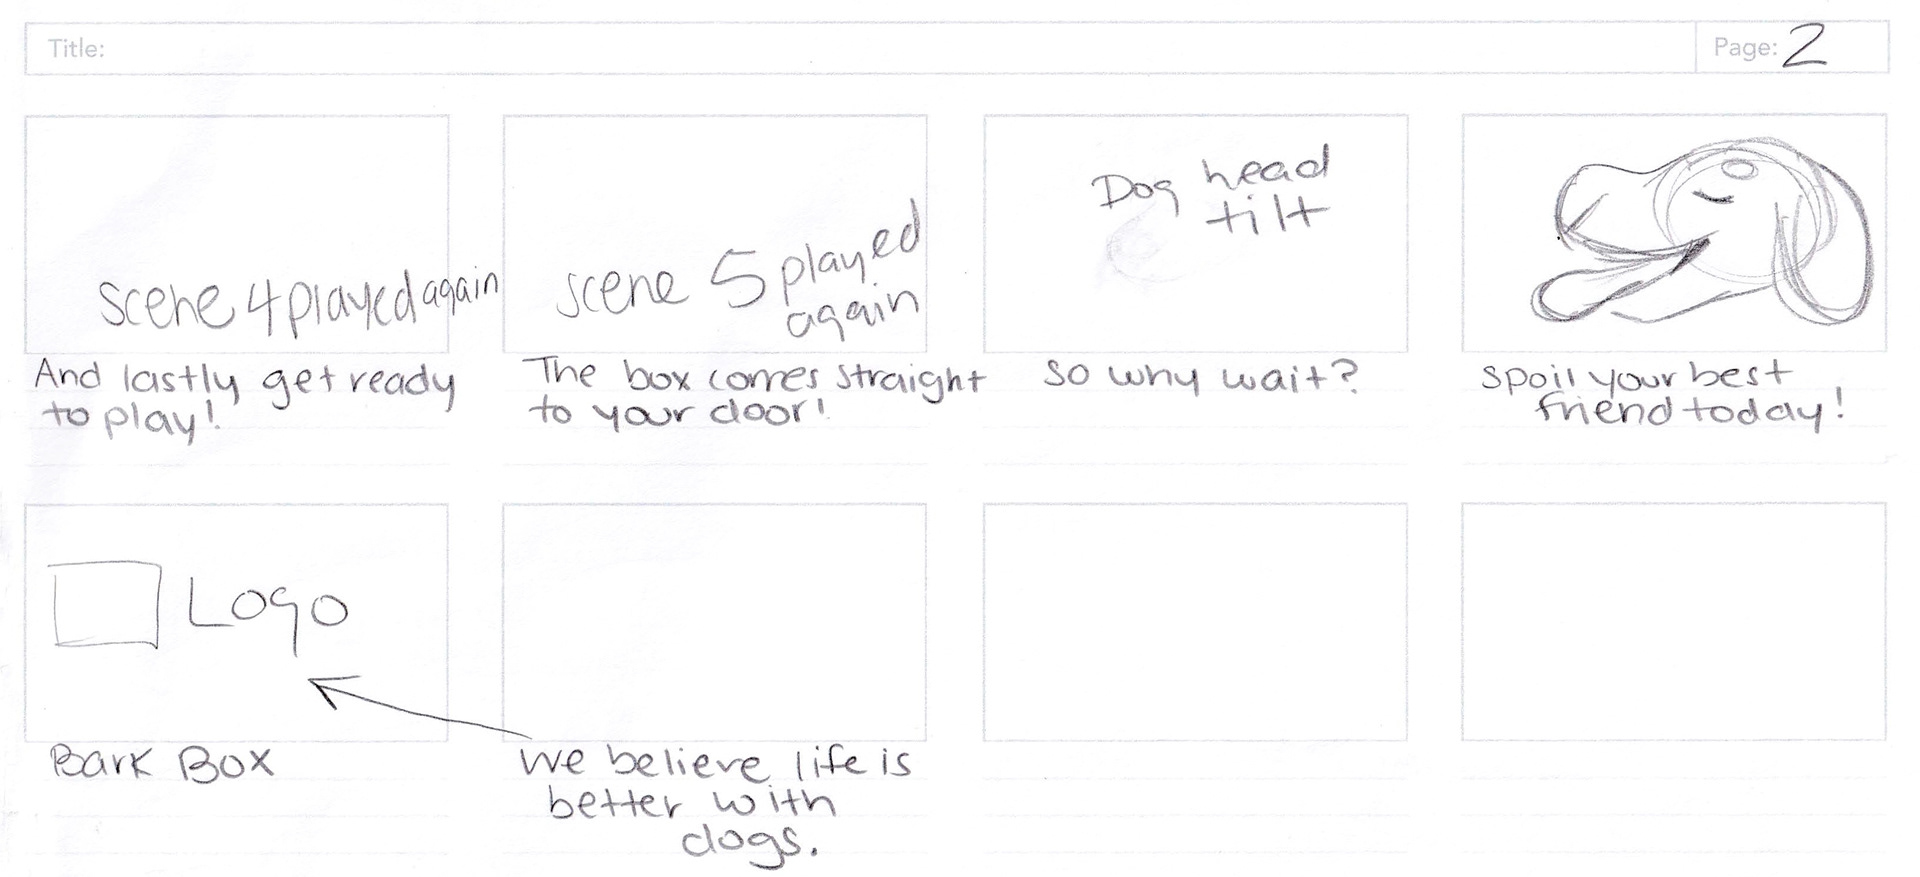 Title:
Page: 2
scene 4 played again
And lastly get ready
to play!
scene 5 played
again
The box comes straight
to your door!
Dog head
tilt
So why wait?
Spoil your best
friend today!
Logo
Bark Box
We believe life is
better with
dogs.